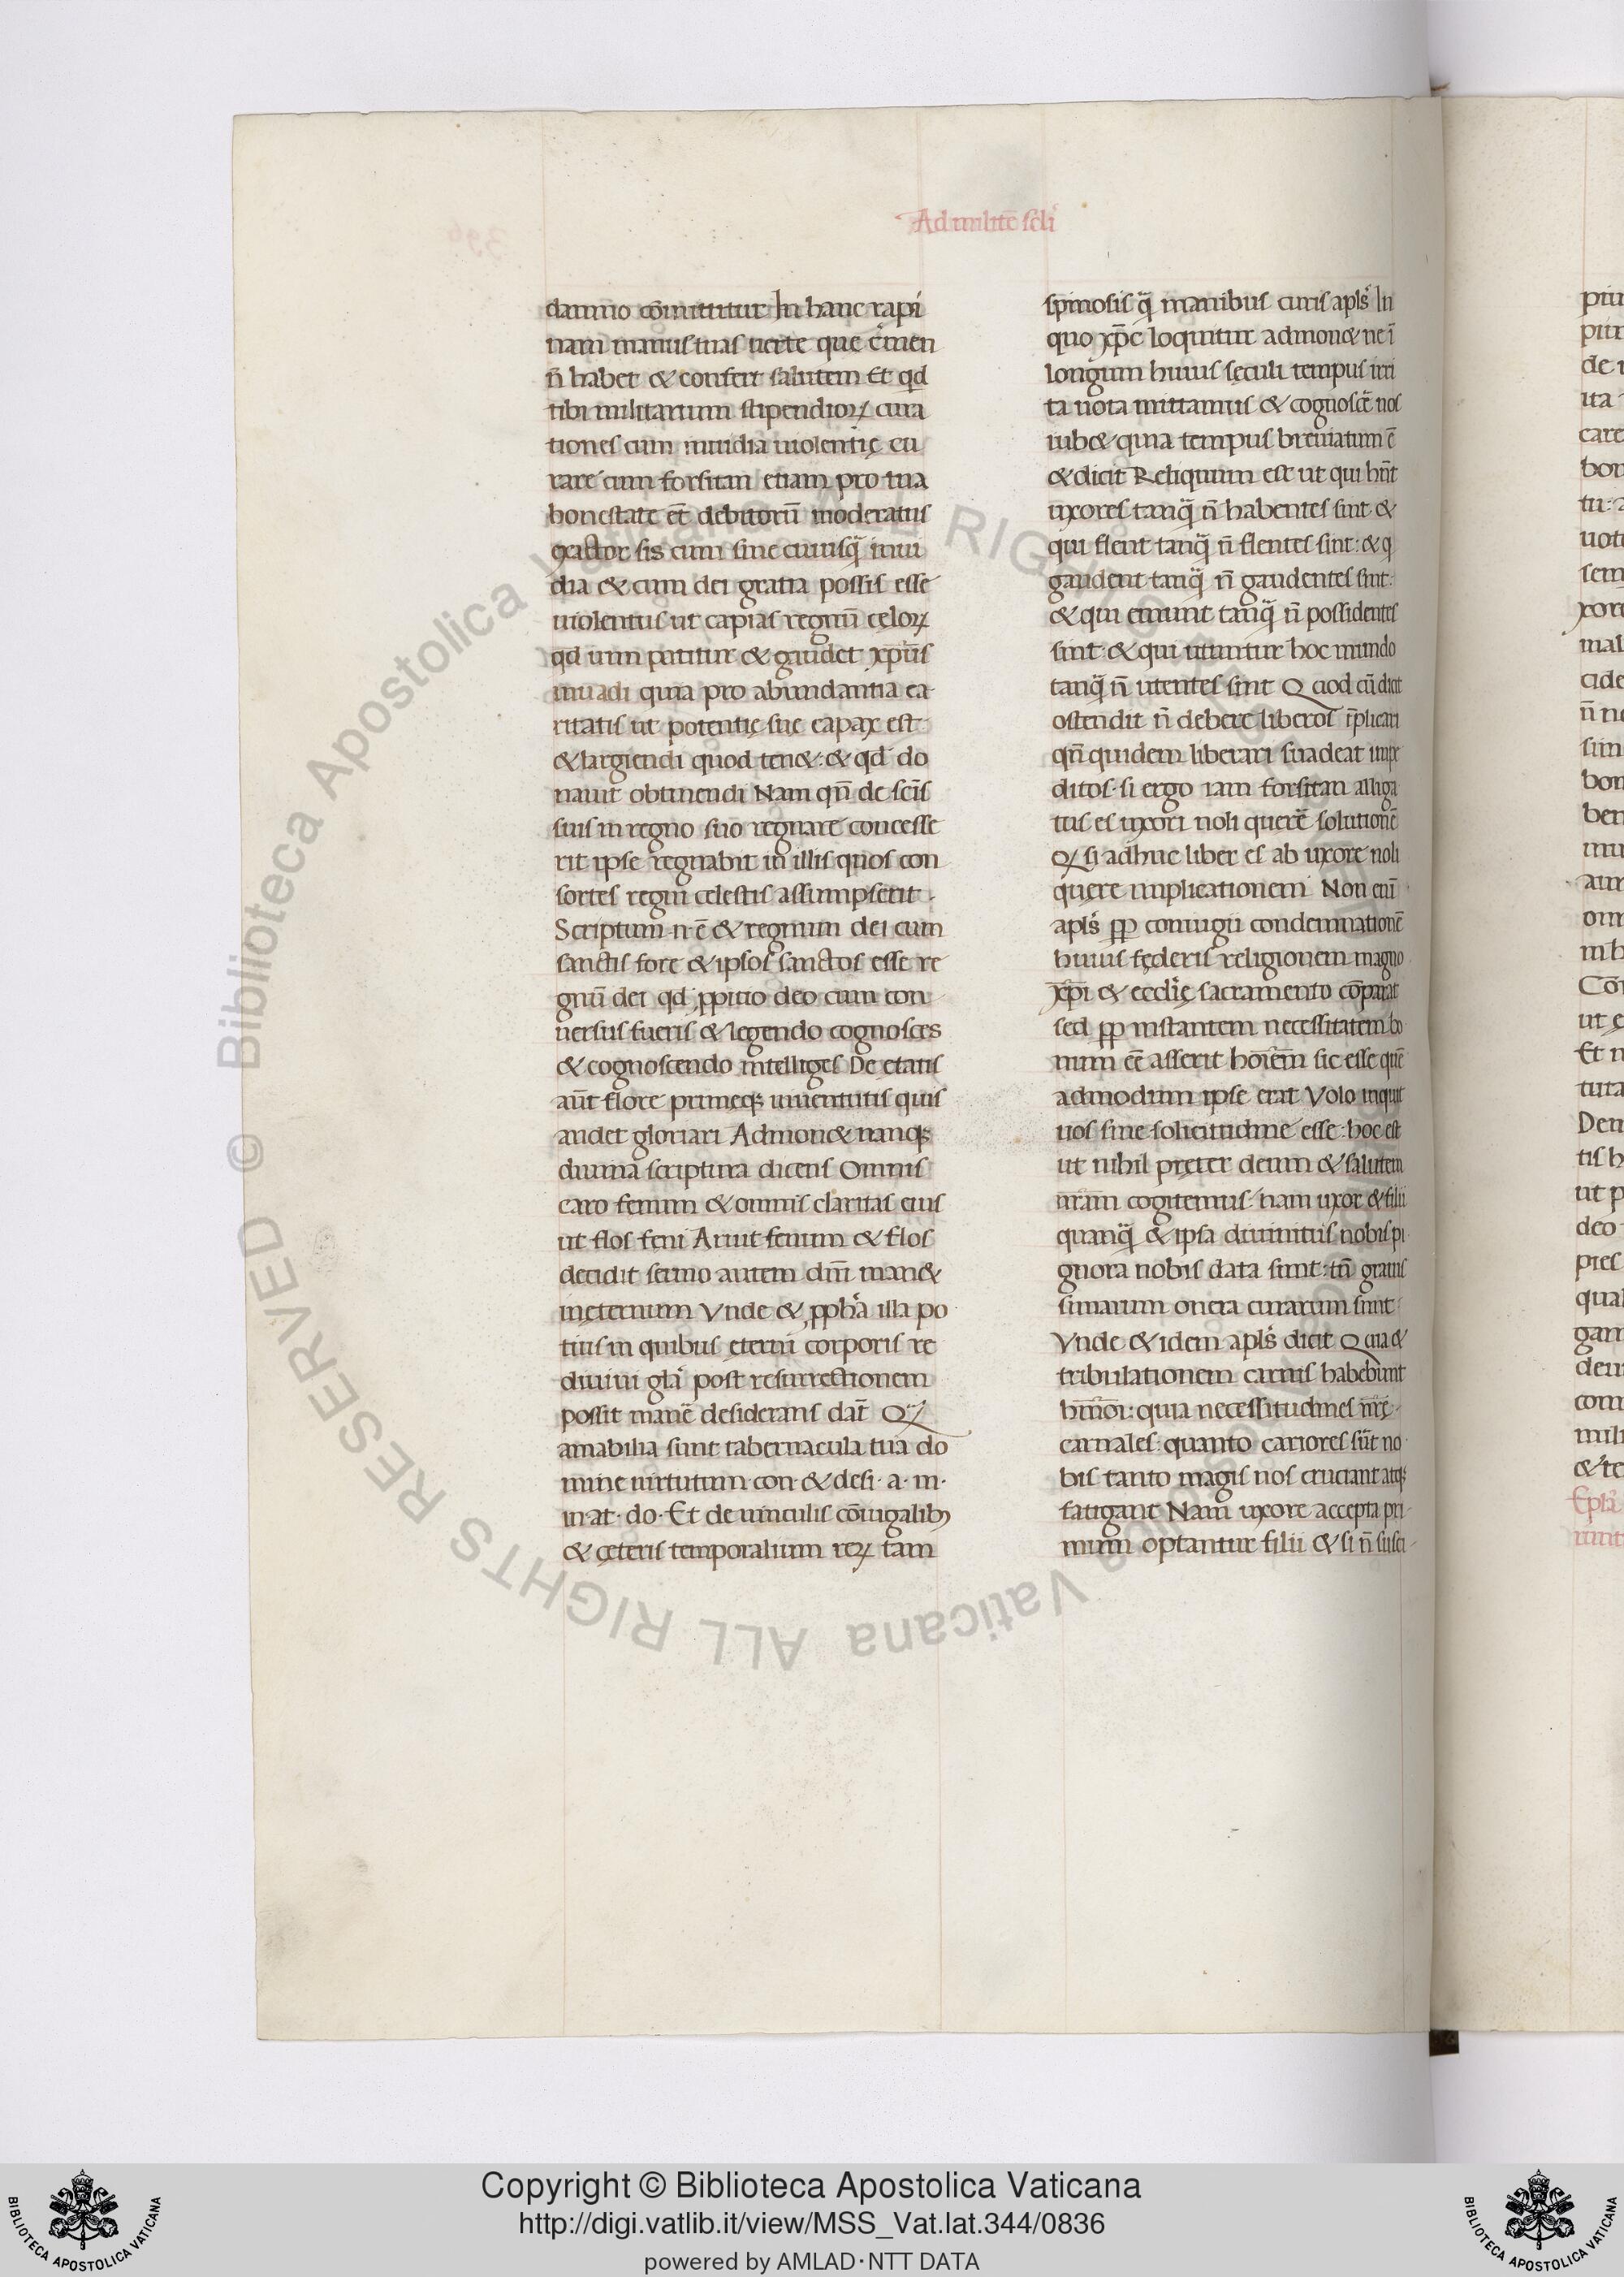 Ad milite᷒ sc̄li
damno co᷒mittitur In hanc rapi
nam manus tuas uerte que c᷒men
n̄ habet & confert salutem Et qd
tibi militarium stipendioꝝ cura
tiones cum inuidia uiolentię cu
rare cum forsitan etiam pro tua
honestate et̄ debitorū moderatus
exactor sis cum sine cuiusq̄ inui
dia & cum dei gratia possis esse
uiolentus ut capias regnū cęloꝝ
qd uim patitur & gaudet xp̄us
inuadi quia pro abundantia ca
ritatis ut potentię sue capax est
& largiendi quod ten&: & qd do
nauit obtinendi Nam qn̄ de sc̄is
suis in regno suo regnare concesse
rit ipse regnabit in illis quos con
sortes regni celestis assumpserit
Scriptum n̄ ē & regnum dei cum
sanctis fore & ipsos sanctos esse re
gnū dei qd ꝓpitio deo cum con
uersus fueris & legendo cognosces
& cognoscendo intelliges De etatis
aūt flore primeqꝫ iuuentutis quis
audet gloriari Admon& nanqꝫ
diuina scriptura dicens Omnis
caro fenum & omnis claritas eius
ut flos feni Aruit fenum & flos
decidit sermo autem dn̄i man&
in ęternum Vnde & ꝓph̄a illa po
tius in quibus ęterni corporis re
diuiui gl̄a post resurrectionem
possit manē desiderans dat̄ Qꝫ
amabilia sunt tabernacula tua do
mine uirtutum con· & desi· a· m·
in· at· do· Et de uinculis cōiugalibꝫ
& cęteris temporalium reꝝ tam
spinosis q̄ manibus curis apl̄s In
quo xp̄c loquitur admon& ne ī
longum huius sęculi tempus irri
ta uota mittamus & cognoscē nos
iub& quia tempus breuiatum ē
& dicit Reliquum est ut qui hn̄t
uxores tanq̄ n̄ habentes sint &
qui flent tanq̄ n̄ flentes sint: & q
gaudent tanq̄ n̄ gaudentes sint:
& qui emunt tanq̄ n̄ possidentes
sint· & qui utuntur hoc mundo
tanq̄ n̄ utentes sint Quod cū dicit
ostendit n̄ debere liberos īplicari
qn̄ quidem liberari suadeat impe
ditos· si ergo iam forsitan alliga
tus es uxori noli querē solutionē
Qꝫ si adhuc liber es ab uxore noli
quęre implicationem Non enī
apl̄s ꝓp coniugii condemnationē
huius fęderis religionem magno
xp̄i & eccl̄ię sacramento cōparat
sed ꝓp instantem necessitatem bo
num eē asserit hoīem sic esse quē
admodum ipse erat Volo inquit
uos sine solicitudine esse: hoc est
ut nihil pręter deum & salutem
nr̄am cogitemus· nam uxor & filii
quanq̄ & ipsa diuinitus nobis pi
gnora nobis data sunt: tn̄ grauis
simarum onera curarum sunt
Vnde & idem apl̄s dicit Quia &
tribulationem carnis habebunt
hm̄oi: quia necessitudines nr̄ę
carnales: quanto cariores sūt no
bis tanto magis nos cruciant atqꝫ
fatigant Nam uxore accepta pri
mum optantur filii & si n̄ susci
© Biblioteca Apostolica Vaticana ALL RIGHTS RESERVED
Copyright © Biblioteca Apostolica Vaticana
http://digi.vatlib.it/view/MSS_Vat.lat.344/0836
powered by AMLAD·NTT DATA
BIBLIOTECA APOSTOLICA VATICANA
BIBLIOTECA APOSTOLICA VATICANA